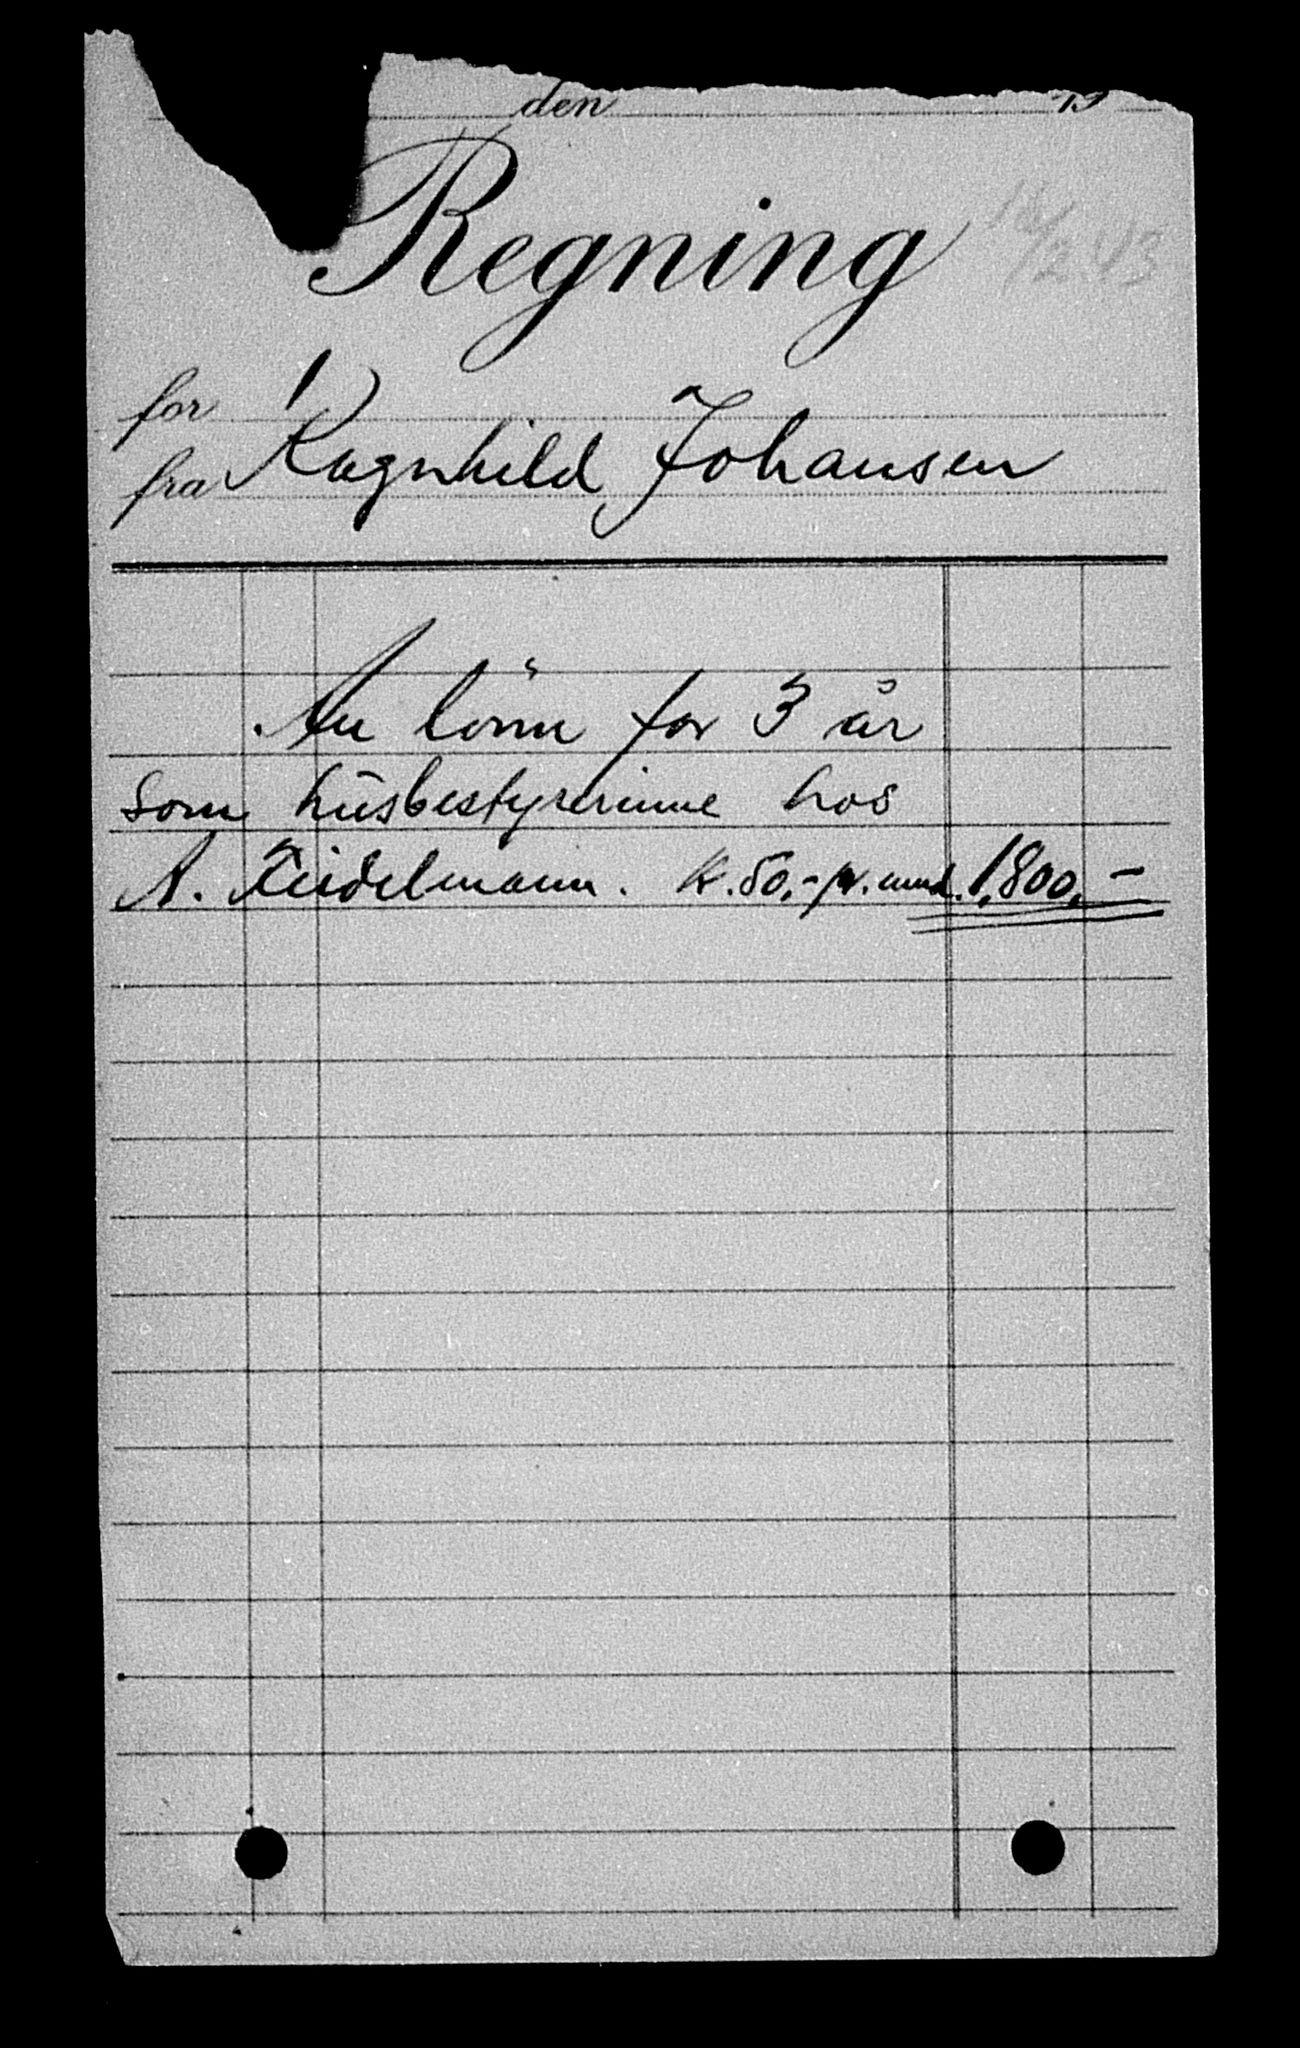 den 19
Regning
16/2 43
for
fra Ragnhild Johansen
An lönn for 3 år
som husbestyrerinne hos
A. Feidelmann. Kr. 50,- pr. mnd. 1,800,-